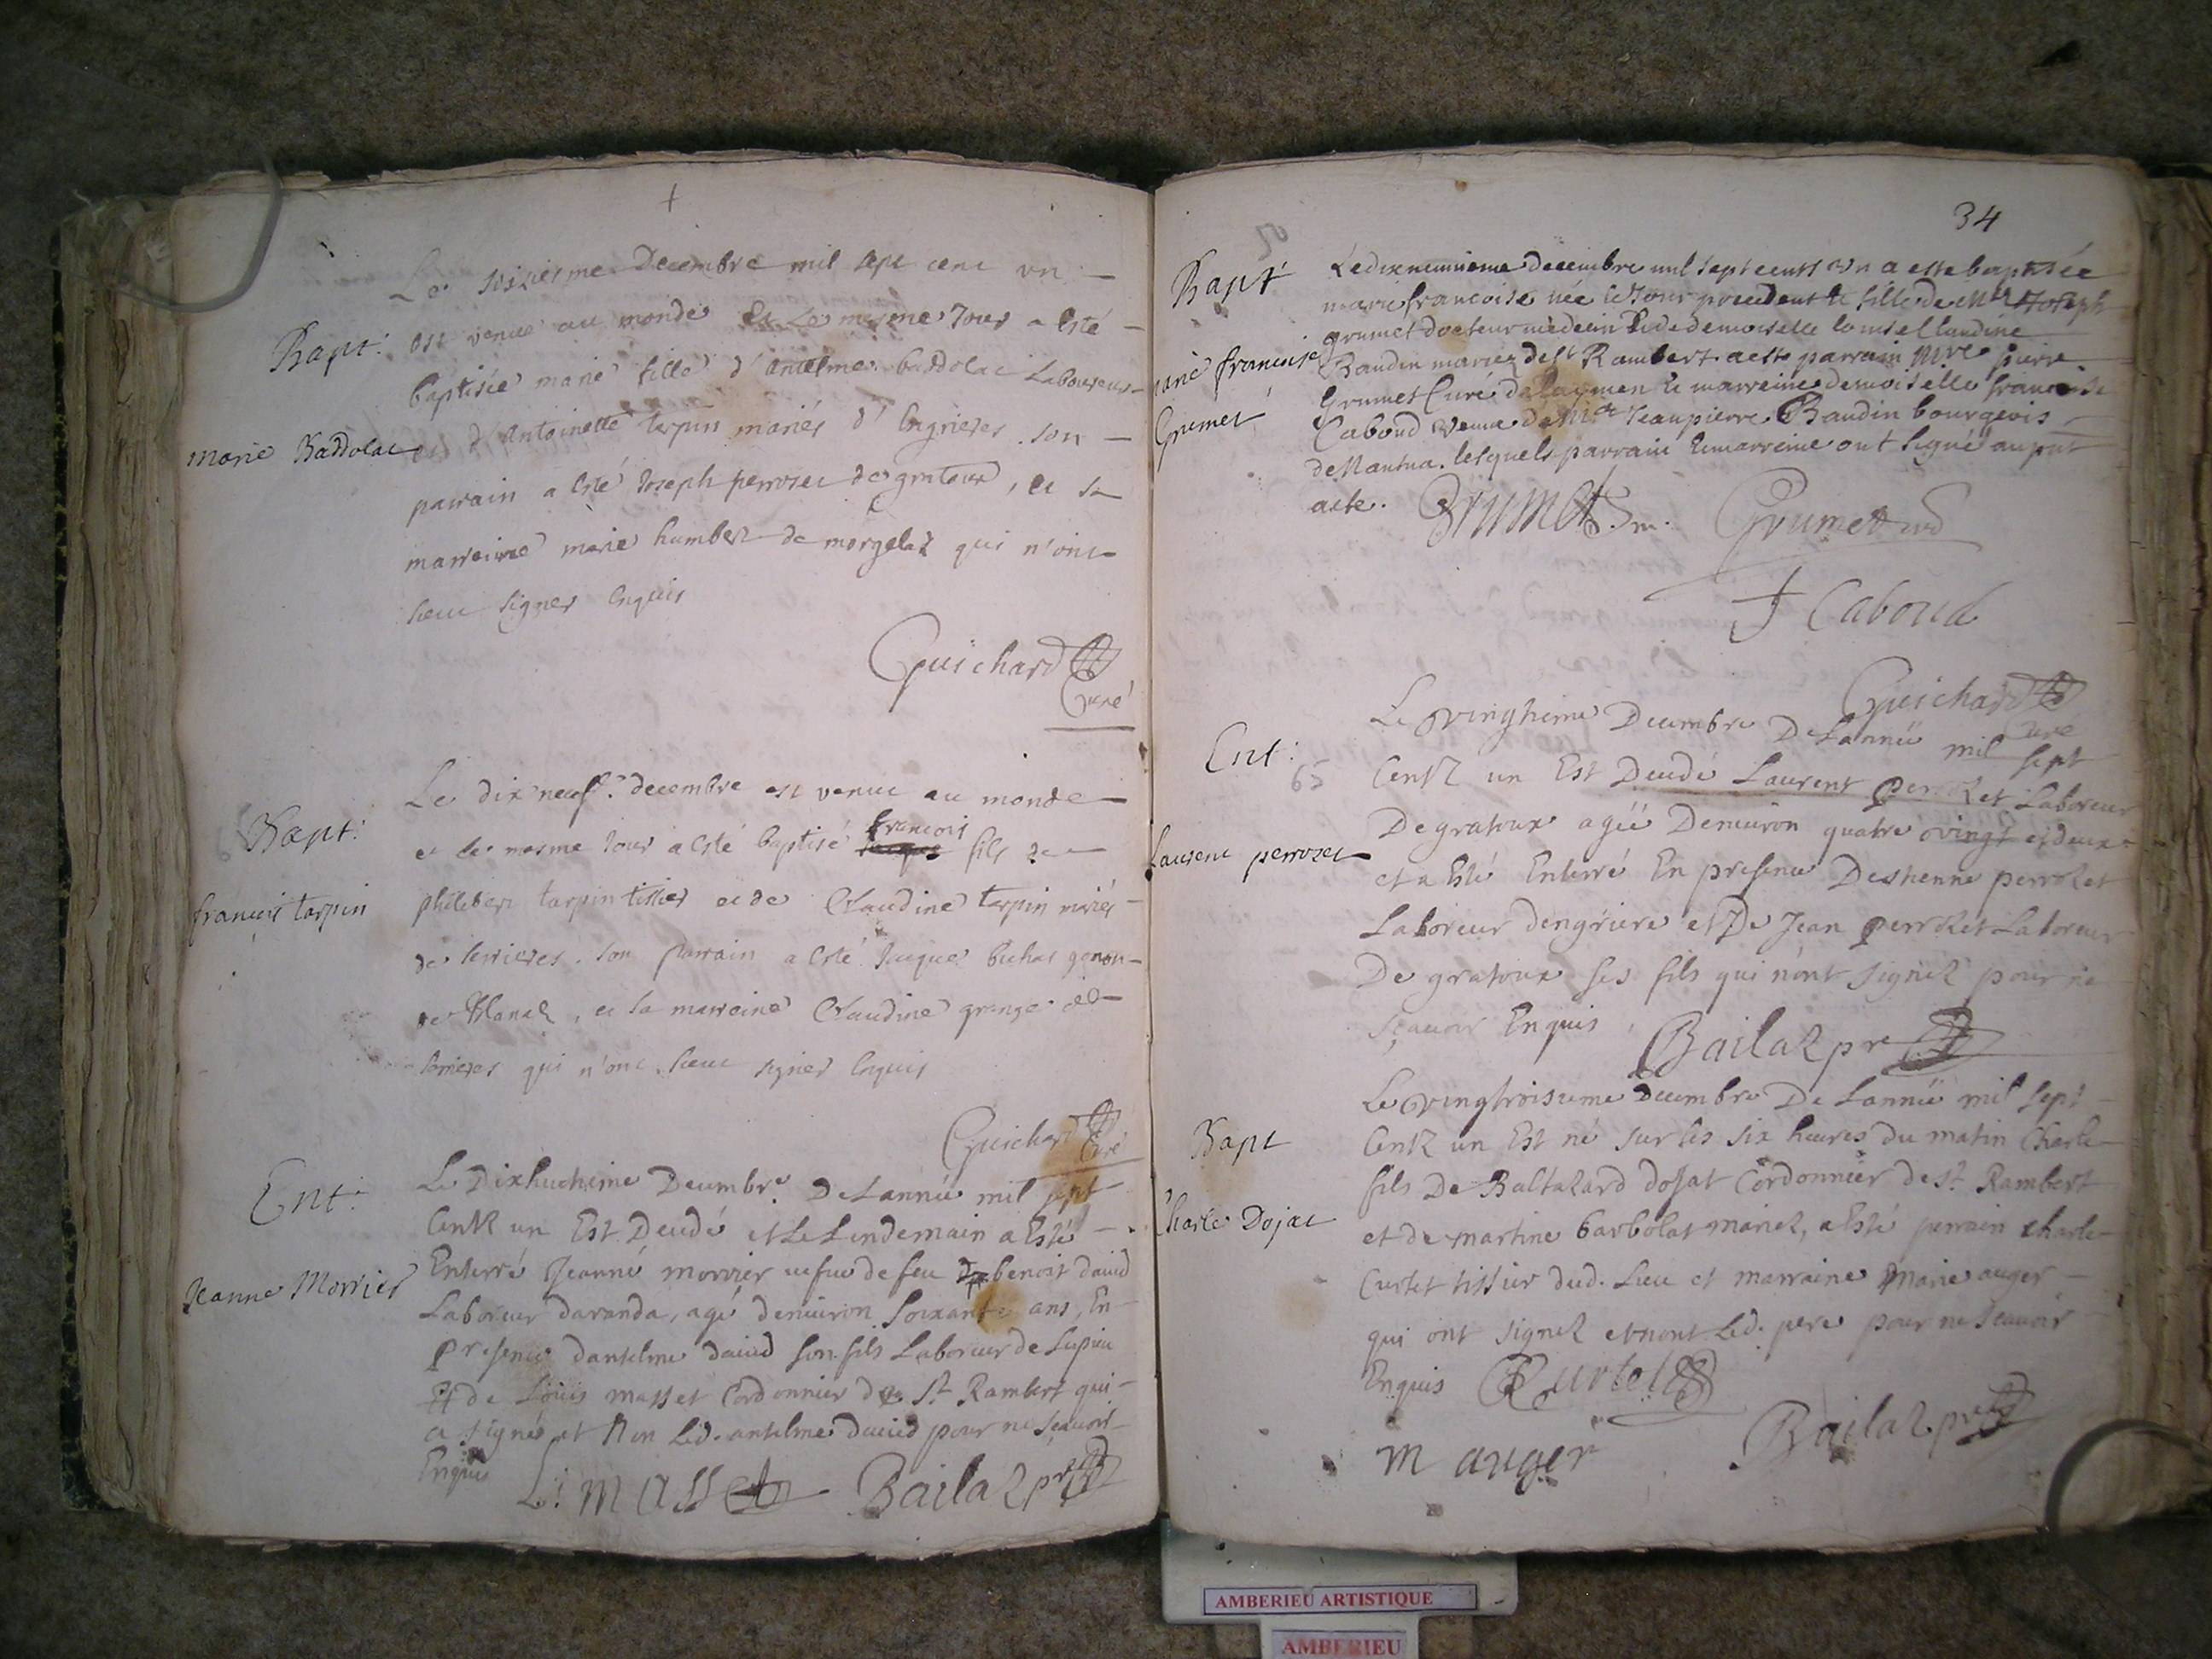 Bapt:
marie Barbolat
Le seiziesme Decembre mil sept cent vn
est venue au monde et Le mesme Jour a esté
baptisée marie fille d'antelme barbolat Laboureur
et d'Antoinette tarpin mariés d'Angrieres. son
parrain a esté Joseph perrozet de gratoux, et sa
marreine marie humbert de morgelaz qui n'ont
sceu signer enquis
Guichard
Curé
Bapt:
françois tarpin
Le dix neuf. decembre est venu au monde
et le mesme Jour a esté baptisé françois fils de
philibert tarpin tissier et de Claudine tarpin mariés
de serrieres. son parrain a esté Jacque buhat
de Blanaz, et la marreine Claudine grange de
serrieres qui n'ont sceu signer enquis
Guichard
Curé
Ent:
Jeanne Morrier
Le Dixhuctieme Decembre De Lannée mil sept
Centz un Est Decedé et Le Lendemain a Esté
Enterré Jeanne morrier vefue de feu benoit david
Laboreur daranda, agé denuiron soixante ans, En
presence dantelme david son fils Laboreur de Lupieu
Et de Louis masset Cordonnier de St. Rambert qui
a signé et Non Led. antelme david pour ne scauoir
Enquis L: masset Bailaz pre
34
Bapt
marie françoise
Grumet
Le dixneuuieme decembre mil sept cents vn a este baptisée
marie francoise née le Jour precedent fille de Mr Joseph
grumet docteur médecin & de demoiselle louise Claudine
Baudin mariez de St Rambert. a este parrain Mre pierre
Grumet Curé de & marreine demoiselle francoise
Caboud veuue de Mr Jean pierre Baudin bourgeois
de Nantua. lesquels parrain & marreine ont signé au pnt
acte. Grumet Dm. Grumet curé
f Caboud
Guichard
Curé
Ent:
65
Laurent perrozet
Le vingtieme Decembre De Lannée mil sept
Centz un Est Decedé Laurent perrozet Laboreur
De gratoux agée Denuiron quatre vingt et deux
et a Esté Enterré En presence Destienne perrozet
Laboreur dengriere et De Jean perrozet Laboreur
De gratoux ses fils qui n'ont signez pour ne
sçauoir Enquis, Bailaz pre
Bapt
Charle Dojat
Le vingtroisieme Decembre De Lannée mil sept
Centz un Est né sur les six heures du matin Charle
fils De Baltazard dojat Cordonnier de St. Rambert
et de martine barbolat mariez, a Esté parrain charle
Curtet tissier dud. Lieu et marraine Marie auger
qui ont signez et nont Led. pere pour ne scauoir
Enquis Curtet
m auger Bailaz pre
AMBERIEU ARTISTIQUE
AMBERIEU